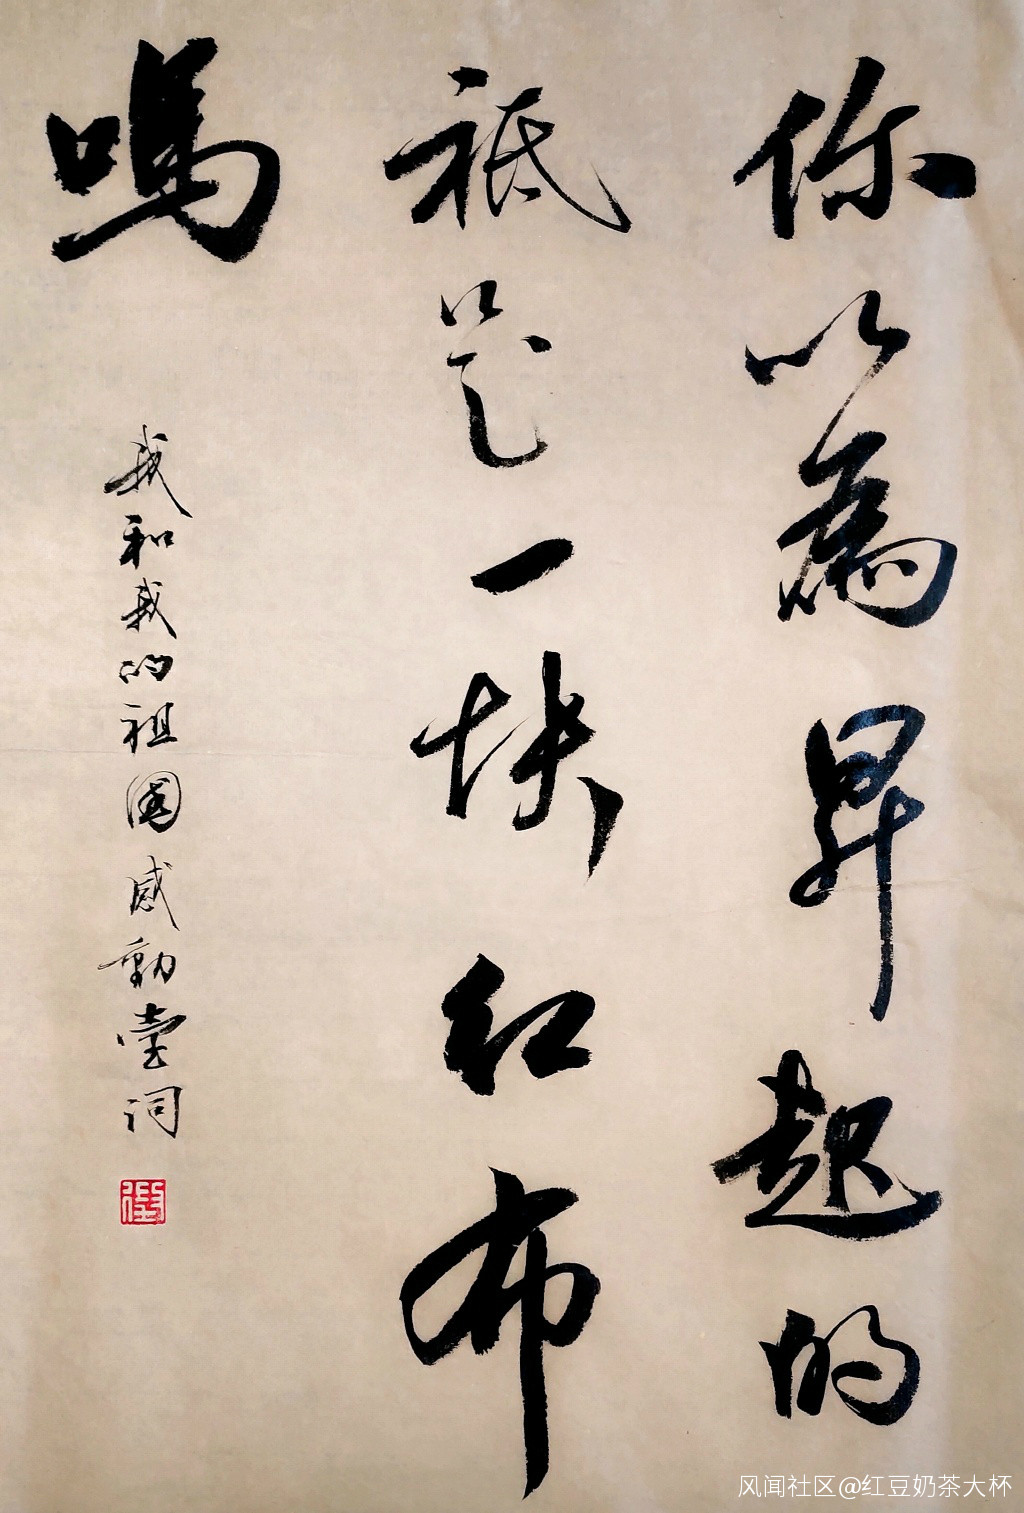 你以為昇起的
祗是一塊紅布
嗎
我和我的祖國感動臺词
风闻社区@红豆奶茶大杯